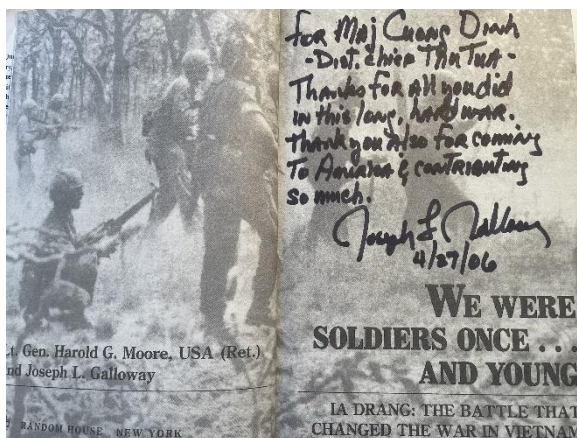 For Maj Chang Dinh
- Dist. Chief Thu Thua -
Thanks for all you did
in this long, hard war.
Thank you also for coming
To America & contributing
so much.
Joseph L Galloway
4/27/06
WE WERE
SOLDIERS ONCE . . .
AND YOUNG
IA DRANG: THE BATTLE THAT
CHANGED THE WAR IN VIETNAM
Lt. Gen. Harold G. Moore, USA (Ret.)
and Joseph L. Galloway
RANDOM HOUSE NEW YORK